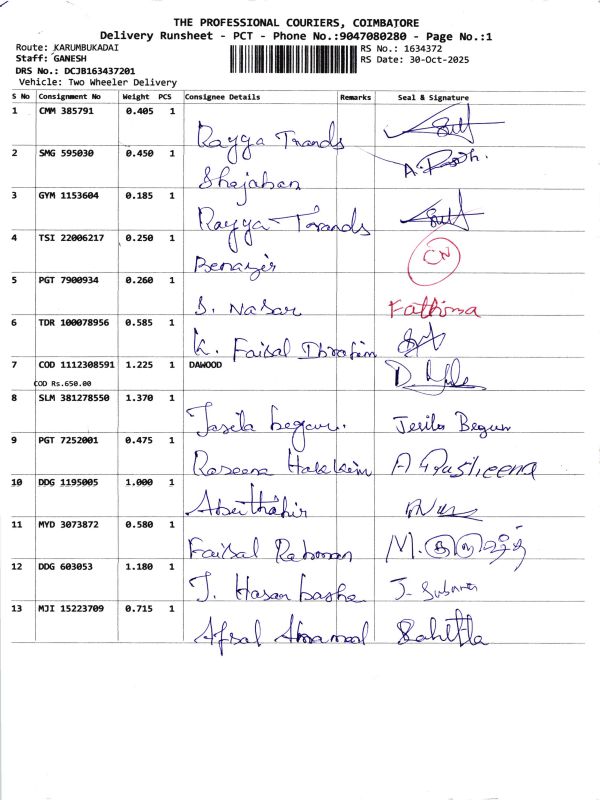 THE PROFESSIONAL COURIERS, COIMBATORE
Delivery Runsheet - PCT - Phone No.:9047080280 - Page No.:1
Route: KARUMBUKADAI RS No.: 1634372
Staff: GANESH RS Date: 30-Oct-2025
DRS No.: DCJB163437201
Vehicle: Two Wheeler Delivery
S No Consignment No Weight PCS Consignee Details Remarks Seal & Signature
1 CMM 385791 0.405 1 Rayga Trands
2 SMG 595030 0.450 1 Shajahan
3 GYM 1153604 0.185 1 Rayga Trands
4 TSI 22006217 0.250 1 Benazir CN
5 PGT 7900934 0.260 1 S. Nasar Fathima
6 TDR 100078956 0.585 1 K. Faisal Ibrahim
7 COD 1112308591 1.225 1 DAWOOD
COD Rs.650.00
8 SLM 381278550 1.370 1 Jasila begum. Jerila Begum
9 PGT 7252001 0.475 1 Raseena Hakkim
10 DDG 1195005 1.000 1 Abuthahir
11 MYD 3073872 0.580 1 Faisal Rahman M.
12 DDG 603053 1.180 1 J. Hasan basha J.
13 MJI 15223709 0.715 1 Afsal